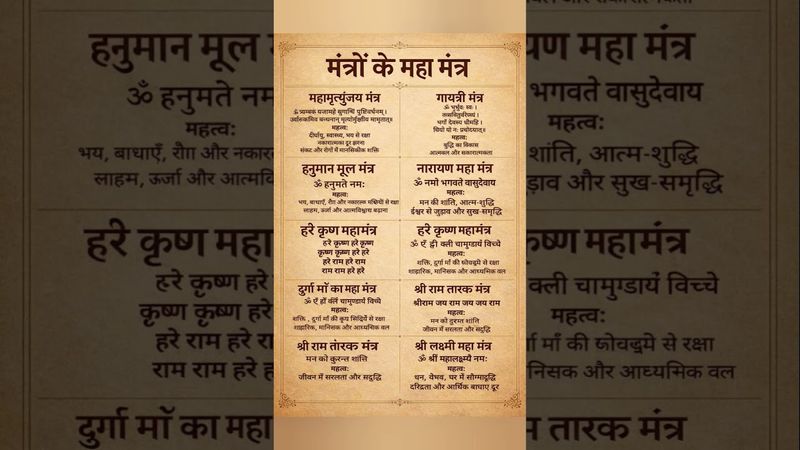 मंत्रों के महा मंत्र
महामृत्युंजय मंत्र
ॐ त्र्यम्बकं यजामहे सुगन्धिं पुष्टिवर्धनम् ।
महत्वः
दीर्घायु, स्वास्थ्य, भय से रक्षा
नकारात्मका दूर झरना
संकट और रोगों में मानसिकीक शक्ति
गायत्री मंत्र
ॐ भूर्भुवः स्वः ।
भर्गो देवस्य धीमहि ।
धियो यो नः प्रचोदयात् ॥
महत्वः
बुद्धि का विकास
आत्मबल और सकारात्मकता
हनुमान मूल मंत्र
ॐ हनुमते नमः
महत्वः
भय, बाधाएँ, और नकारात्म से रक्षा
लाहम, ऊर्जा और आत्मविश्वाय बढ़ाना
नारायण महा मंत्र
ॐ नमो भगवते वासुदेवाय
महत्वः
मन की शांति, आत्म-शुद्धि
ईश्वर से जुड़ाव और सुख-समृद्धि
हरे कृष्ण महामंत्र
हरे कृष्ण हरे कृष्ण
कृष्ण कृष्ण हरे हरे
हरे राम हरे राम
राम राम हरे हरे
हरे कृष्ण महामंत्र
ॐ ऐं ह्री क्ली चामुण्डायं विच्चे
महत्वः
शक्ति, दुर्गा माँ की से रक्षा
शाहारिक, मानसिक और आध्यमिक वल
दुर्गा माँ का महा मंत्र
ॐ ऐं ह्रीं क्लीं चामुण्डार्य विच्चे
महत्वः
शक्ति , दुर्गा माँ की कृय से रक्षा
शाहारिक, मानिसक और आध्यमिक वल
श्री राम तारक मंत्र
श्रीराम जय राम जय जय राम
महत्वः
मन को तुरन्त शांति
जीवन में सरलता और सदुद्धि
श्री राम तारक मंत्र
मन को कुरन्त शांत्ति
महत्वः
जीवन में सरलता और सदुद्धि
श्री लक्ष्मी महा मंत्र
ॐ श्रीं महालक्ष्म्यै नमः
महत्वः
धन, वेभव, घर में सौम्मादृद्धि
दरिद्रता और आर्थिक बाधाए दूर